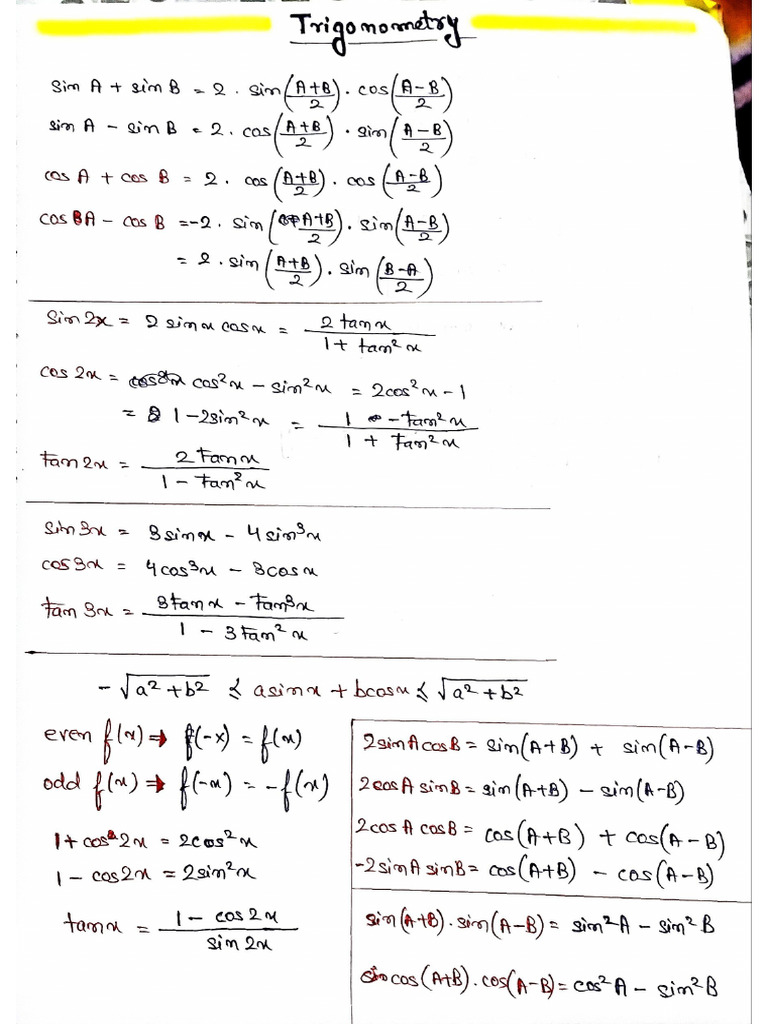 Trigonometry
sin A + sin B = 2 . sin((A+B)/2) . cos((A-B)/2)
sin A - sin B = 2 . cos((A+B)/2) . sin((A-B)/2)
cos A + cos B = 2 . cos((A+B)/2) . cos((A-B)/2)
cos A - cos B = -2 . sin((A+B)/2) . sin((A-B)/2)
= 2 . sin((A+B)/2) . sin((B-A)/2)
Sin 2x = 2 sinx cosx = 2 tanx / (1 + tan²x)
cos 2x = cos²x - sin²x = 2cos²x - 1
= 1 - 2sin²x = (1 - tan²x) / (1 + tan²x)
tan 2x = 2 tanx / (1 - tan²x)
sin 3x = 3sinx - 4sin³x
cos 3x = 4cos³x - 3cosx
tan 3x = (3tanx - tan³x) / (1 - 3tan²x)
-√(a²+b²) ≤ asinx + bcosx ≤ √(a²+b²)
even f(x) ⇒ f(-x) = f(x)
odd f(x) ⇒ f(-x) = -f(x)
1 + cos2x = 2cos²x
1 - cos2x = 2sin²x
tanx = (1 - cos2x) / sin2x
2sinAcosB = sin(A+B) + sin(A-B)
2cosAsinB = sin(A+B) - sin(A-B)
2cosAcosB = cos(A+B) + cos(A-B)
-2sinAsinB = cos(A+B) - cos(A-B)
sin(A+B).sin(A-B) = sin²A - sin²B
cos(A+B).cos(A-B) = cos²A - sin²B